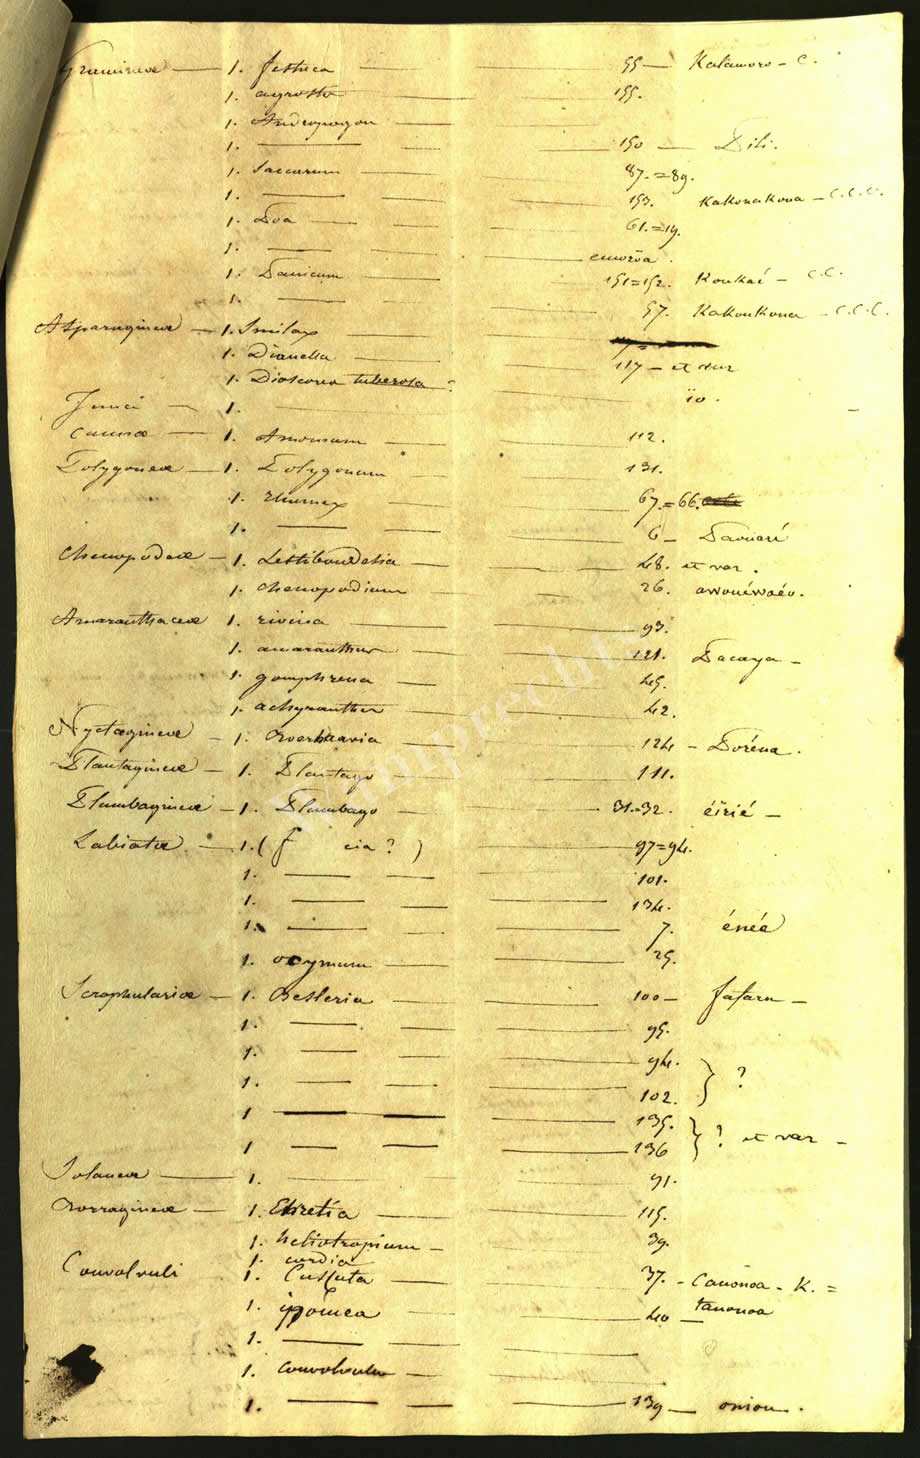 Gramineae — 1. festuca — 55 — Kalamoro - C.
1. agrostis — 155.
1. Andropogon
1. — 150 — Pili.
1. Saccarum — 87.=89.
1. — 153. Kakonakona - C.C.C.
1. Poa — 61.=19.
1. — emoroa.
1. Panicum — 151=152. Koukaé - C.C.
1. — 57. Kakonkona - C.C.C.
Asparagineae — 1. Smilax
1. Dianella — 117 - et var
1. Dioscorea tuberosa ? — ïo.
Junci — 1.
cannae — 1. Amomum — 112.
Polygoneae — 1. Polygonum — 131.
1. rhumex — 67.=66.
1. — 6 —
Chenopodeae — 1. Lestiboudesia — 48. et var.
1. chenopodium — 26. awouéwoéo.
Amaranthaceae — 1. rivina — 93.
1. amaranthus — 121. Pacaya -
1. gomphrena — 45.
1. achyranthes — 42.
Nyctagineae — 1. Boerhaavia — 124 - Poréna.
Plantagineae — 1. Plantago — 111.
Plumbagineae — 1. Plumbago — 31.=32. éïrié -
Labiatae — 1. ( f cia ? ) — 97=94.
1. — 101.
1. — 134.
1. — 7. énéé
1. ocymum — 25.
Scrophulariae — 1. Besleria — 100 - fafaru -
1. — 95.
1. — 94. } ?
1. — 102.
1 — 135. } ? et var -
1 — 136
Solaneae — 1. — 91.
Borragineae — 1. Ehretia — 115.
1. heliotropium — 39.
1. cordia
Convolvuli 1. Cuscuta — 37. - Canonoa - K. =
1. ipomea — 40 — tanonoa
1. —
1. convolvulus
1. — 139 — oniou.
Lamprecht